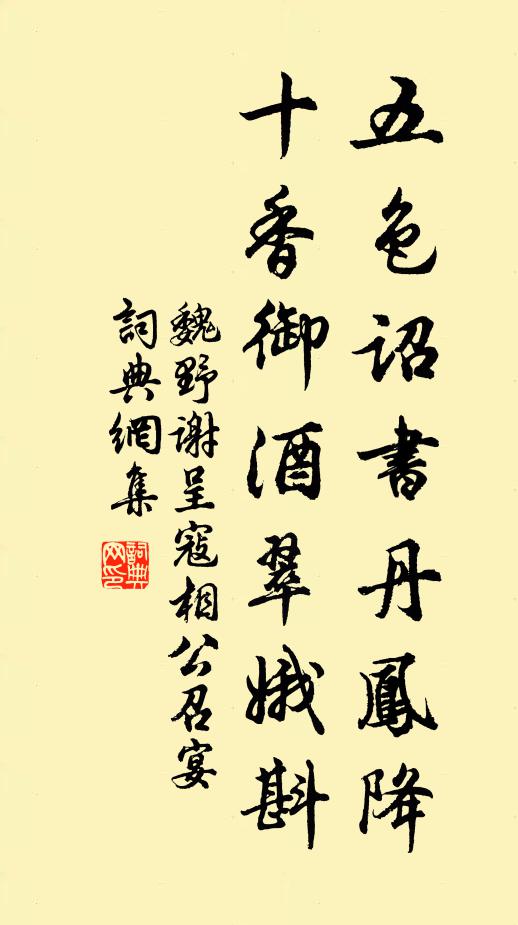 五色詔書丹鳳降
十香御酒翠娥斟
魏野谢呈寇相公召宴
詞典網集
詞典網印